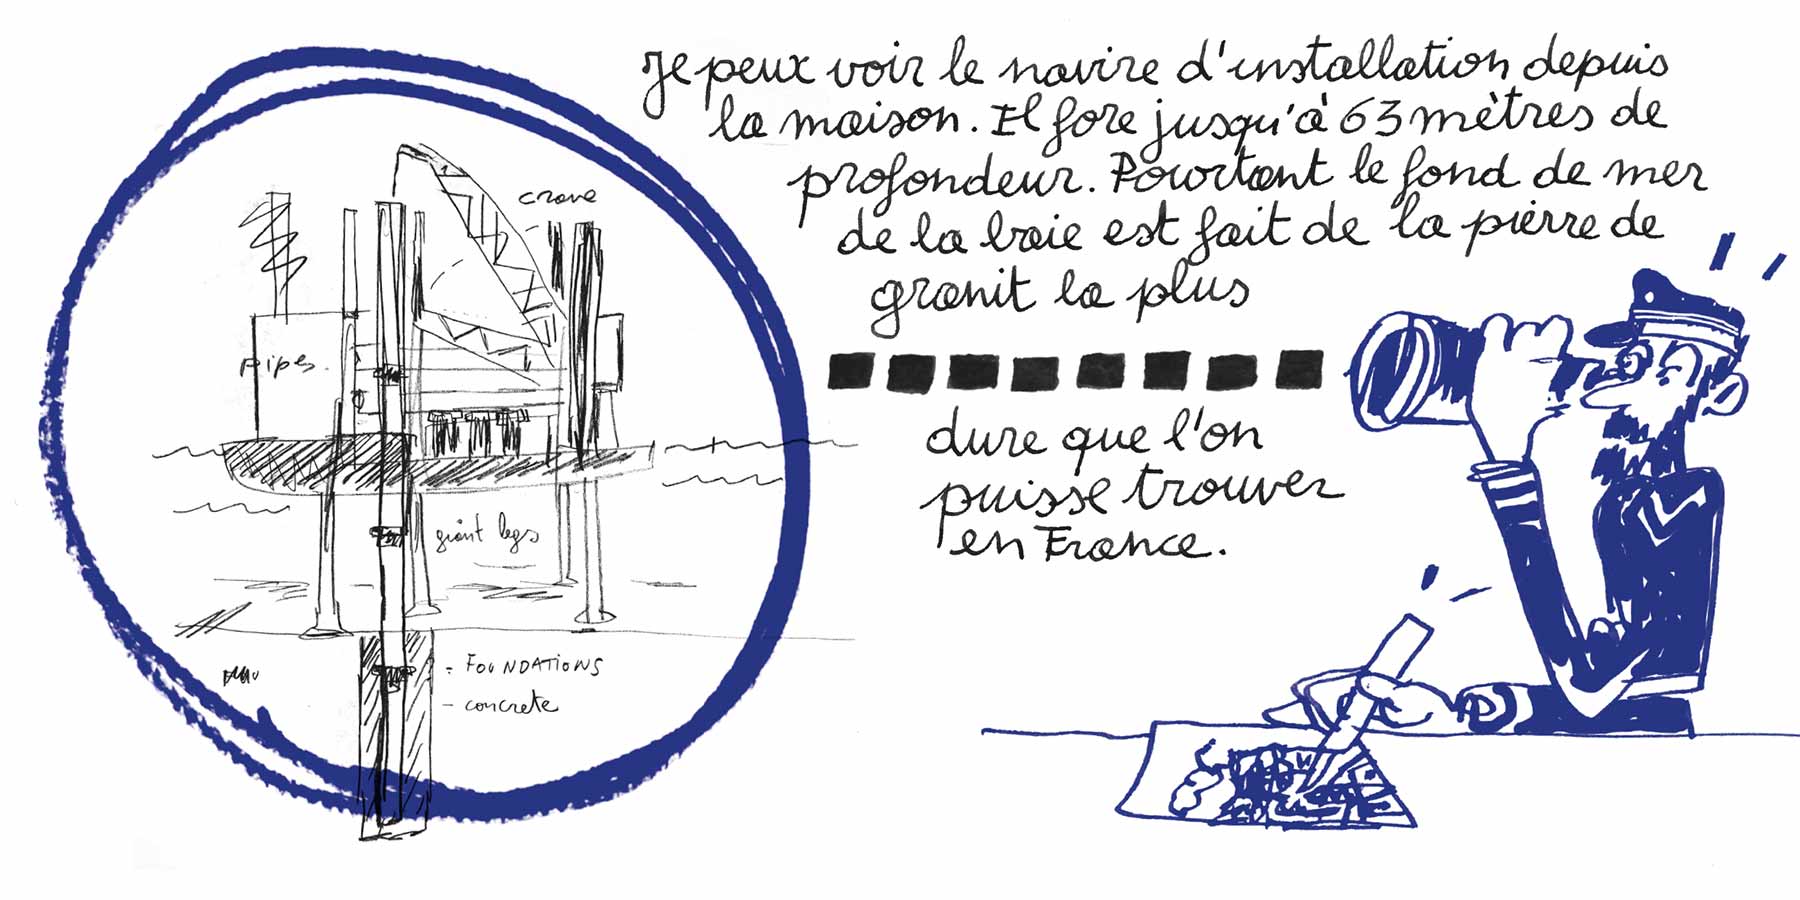 Je peux voir le navire d'installation depuis
la maison. Il fore jusqu'à 63 mètres de
profondeur. Pourtant le fond de mer
de la baie est fait de la pierre de
granit la plus
dure que l'on
puisse trouver
en France.
crane
pipes.
giant legs
- FOUNDATIONS
- concrete